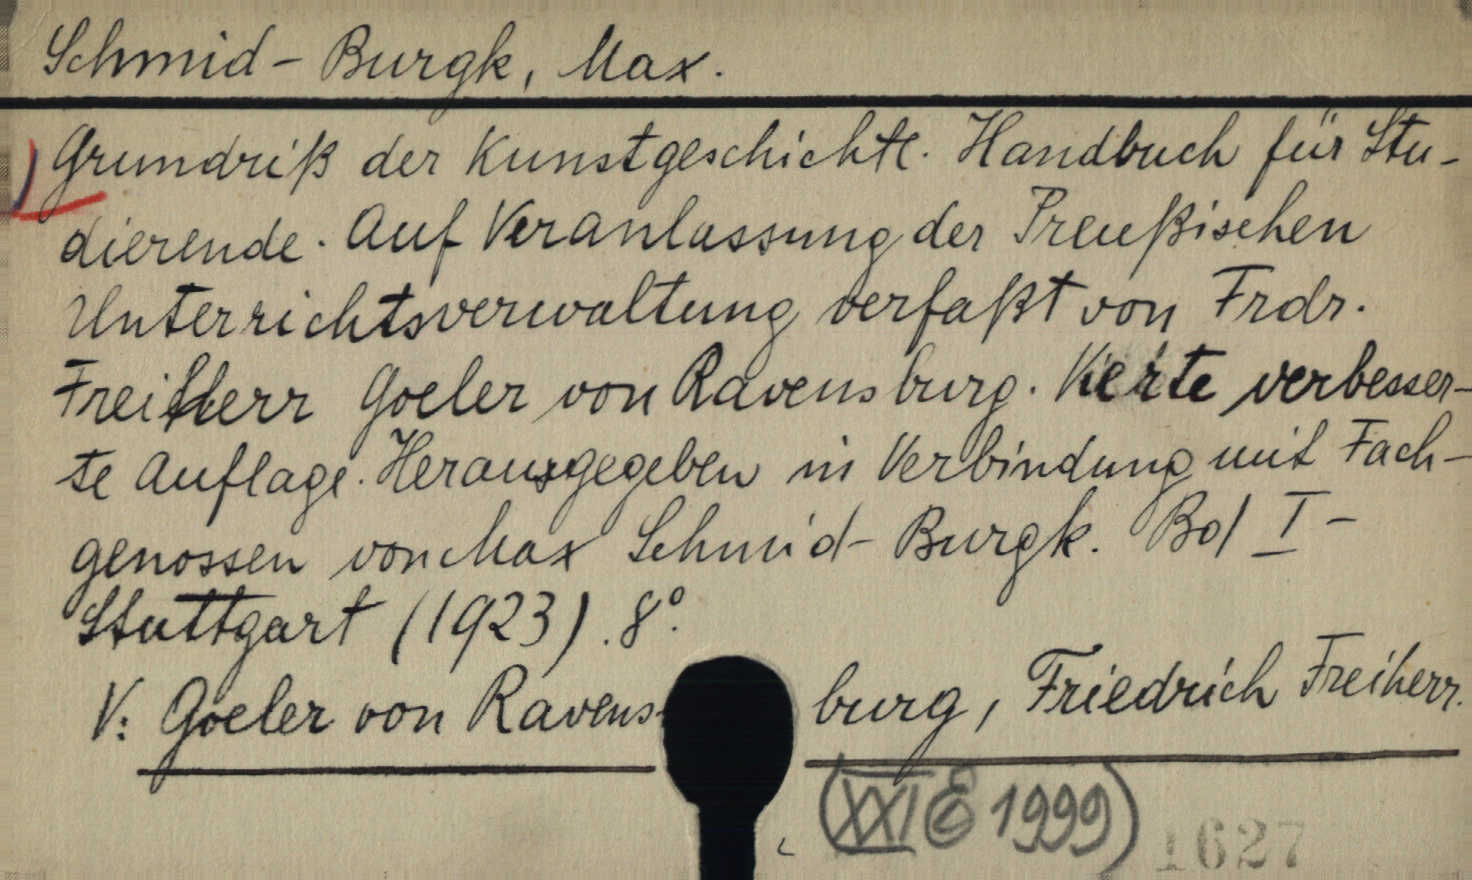 Schmid-Burgk, Max.
Grundriß der Kunstgeschichte. Handbuch für Stu-
dierende. Auf Veranlassung der Preußischen
Unterrichtsverwaltung verfaßt von Frdr.
Freiherr Goeler von Ravensburg. Vierte verbesser-
te Auflage. Herausgegeben in Verbindung mit Fach-
genossen von Max Schmid-Burgk. Bd I-
Stuttgart (1923). 8°.
V: Goeler von Ravens-burg, Friedrich Freiherr.
(XXI 1999)
1627